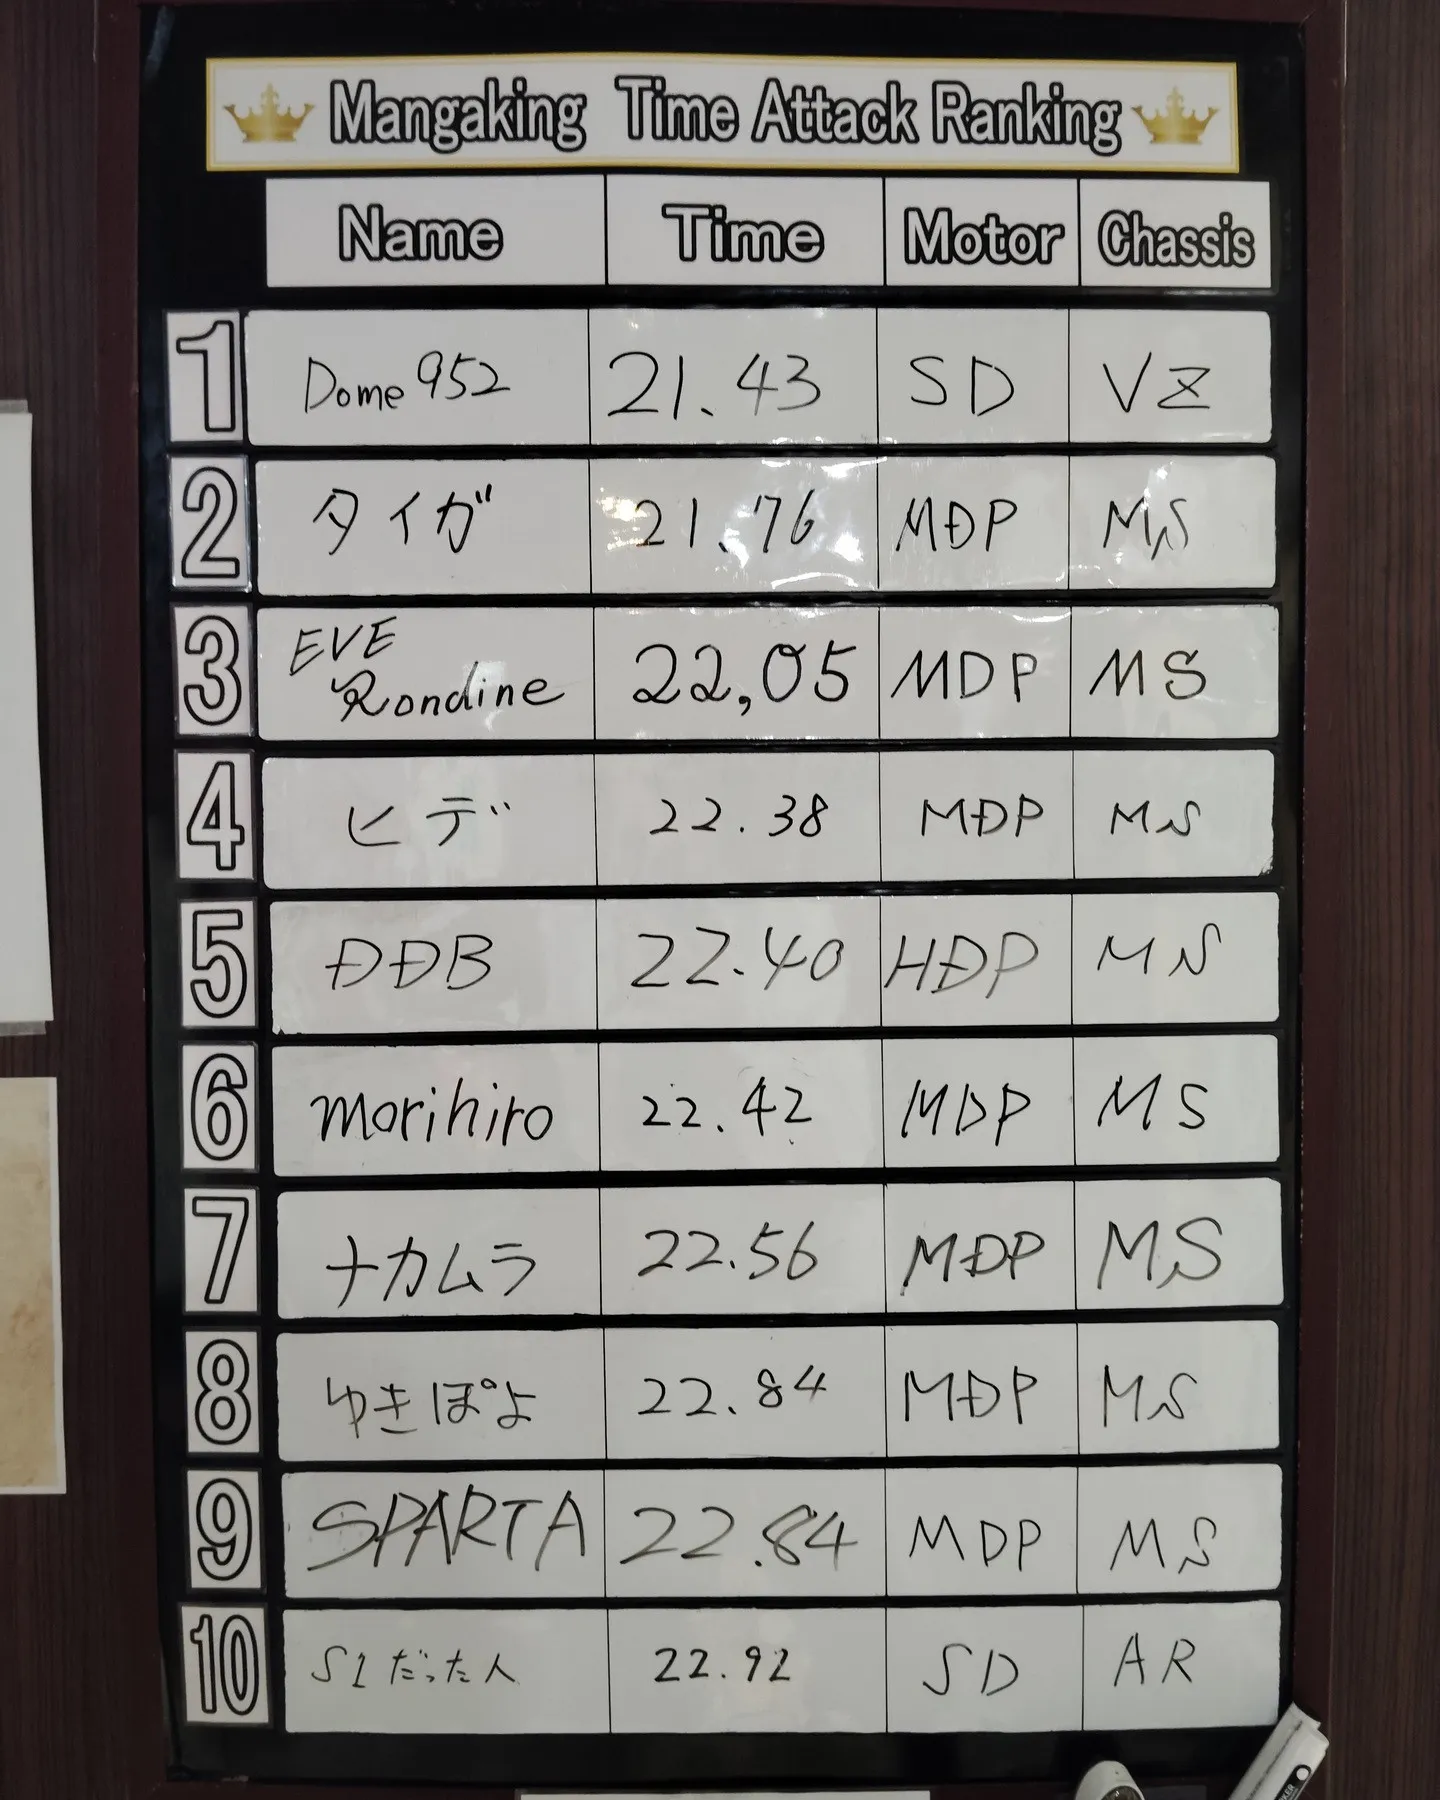 Mangaking Time Attack Ranking
Name Time Motor Chassis
1 Dome952 21.43 SD VZ
2 タイガ 21.76 MDP MS
3 EVE Rondine 22,05 MDP MS
4 ヒデ 22.38 MDP MS
5 DDB 22.40 HDP MS
6 morihiro 22.42 MDP MS
7 ナカムラ 22.56 MDP MS
8 ゆきぽよ 22.84 MDP MS
9 SPARTA 22.84 MDP MS
10 S1だった人 22.92 SD AR